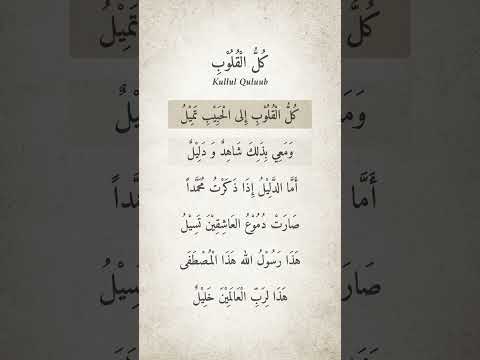 كُلُّ الْقُلُوْبِ
Kullul Quluub
كُلُّ الْقُلُوْبِ إِلَى الْحَبِيْبِ تَمِيْلُ
وَمَعِي بِذَلِكَ شَاهِدٌ وَ دَلِيْلٌ
أَمَّا الدَّلِيْلُ إِذَا ذَكَرْتُ مُحَمَّداً
صَارَتْ دُمُوْعُ العَاشِقِيْنَ تَسِيْلُ
هَذَا رَسُوْلُ الله هَذَا الْمُصْطَفَى
هَذَا لِرَبِّ الْعَالَمِيْنَ خَلِيْلٌ